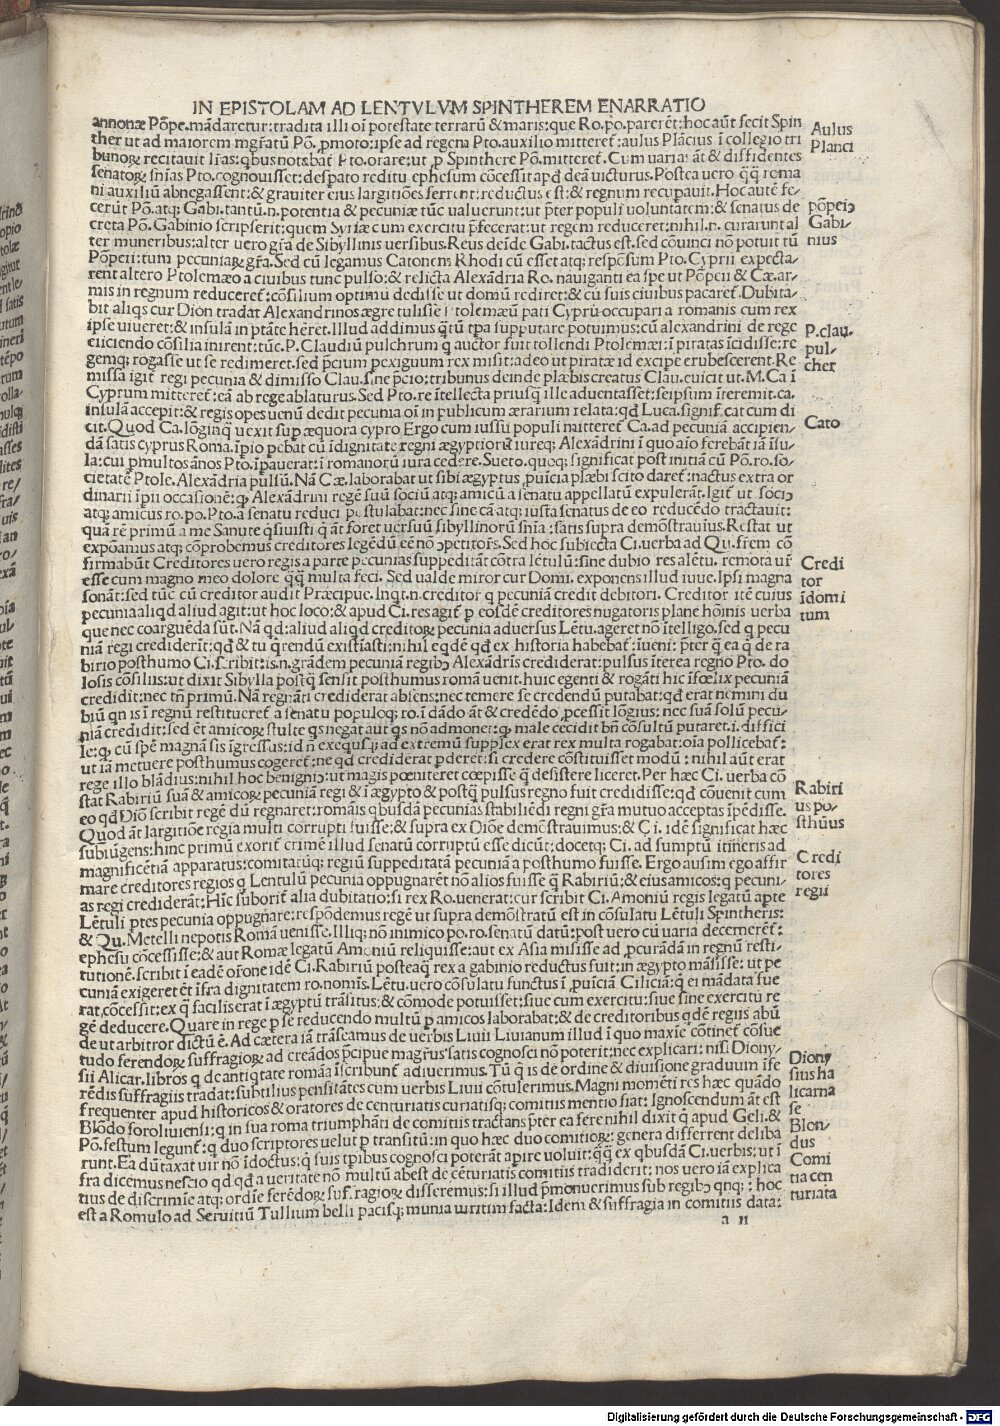 IN EPISTOLAM AD LENTVLVM SPINTHEREM ENARRATIO
annonæ Põpe.mãdaretur:tradita illi oĩ potestate terrarũ & maris:que Ro.po.pareret:hoc aũt fecit Spin
ther ut ad maiorem mgr̃atũ Põ. promoto:ipse ad regena Pto.auxilio mitteret:aulus Plãcius ĩ collegio tri
Aulus
Planci
senatoꝝ Pto.cognouisset:despato reditu ephesum cõcessit apd deã uicturus.Postea uero
ni auxiliũ abnegassent:& grauiter eius largitiões ferrent:reductus est:& regnum recupauit.Hoc autẽ fe
cerũt Põ.atq; Gabi.tantũ.n.potentia & pecuniæ tũc ualuerunt:ut p̃ter populi uoluntatem:& senatus de
creta Põ.Gabinio scripserit:quem Syriæ cum exercitu p̃fecerat:ut regem reduceret:nihil.n.curarunt al
ter muneribus:alter uero gr̃a de Sibyllinis uersibus.Reus deĩde Gabi.tactus est.sed cõuinci nõ potuit tũ
põpei
Gabi-
nius
Põpeii:tum pecuniaꝝ gr̃a.Sed cũ legamus Catonem Rhodi cũ esset atq; respõsum Pto.Cyprii expecta-
rent altero Ptolemæo a ciuibus tunc pulso:& relicta Alexãdria Ro.nauiganti ea spe ut Põpeii & Cæ.ar-
mis in regnum reduceret:cõsilium optimũ dedisse ut domũ rediret:& cũ suis ciuibus pacaret.Dubita-
bit aliqs cur Dion tradat Alexandrinos ægre tulisse Ptolemæũ pati Cyprũ occupari a romanis cum rex
ipse uiueret:& insulã in ptãte hẽret.Illud addimus qtũ tpa supputare potuimus:cũ alexandrini de rege
eiiciendo cõsilia inirent:tũc.P.Claudiũ pulchrum q auctor fuit tollendi Ptolemæi:ĩ piratas ĩcidisse:re
P.clau-
pul-
cher
gemq; rogasse ut se redimeret.sed p̃cium pexiguum rex misit:adeo ut piratæ id excipe erubescerent.Re
missa igit regi pecunia & dimisso Clau.sine p̃cio:tribunus deinde plæbis creatus Clau.euicit ut.M.Ca ĩ
Cyprum mitteret:eã ab rege ablaturus.Sed Pto.re ĩtellecta priusq̃ ille aduentasset:seipsum ĩteremit.ca.
insulã accepit:& regis opes uenũ dedit pecunia oĩ in publicum ærarium relata:qd Luca.signif.cat cum di
cit.Quod Ca.lõginq uexit sup æquora cypro Ergo cum iussu populi mitteret Ca.ad pecuniã accipien-
Cato
dã satis cyprus Roma.ĩpio pebat cũ ĩdignitate regni ægyptiorũ iureq; Alexãdrini ĩ quo aĩo ferebãt iã ĩsu-
la:cui p multos ãnos Pto.ĩpauerat:ĩ romanorũ iura cedere.Sueto.quoq; significat post initiã cũ Põ.ro.so-
cietatẽ Ptole.Alexãdria pulsũ.Nã Cæ.laborabat ut sibi ægyptus puĩcia plæbi scito daret:nactus extra or
dinarii ĩpii occasionẽ:q Alexãdrini regẽ suũ sociũ atq; amicũ a senatu appellatũ expulerãt.Igit ut socio
atq; amicus ro.po.Pto.a senatu reduci postulabat:nec sine cã atq; iusta senatus de eo reducẽdo tractauit:
quã rẽ primũ a me Sanute q̃siuisti:q ãt foret uersuũ sibyllinorũ sñia:satis supra demõstrauius.Restat ut
expõamus atq; cõprobemus creditores legẽdũ eẽ nõ cõpetitors.Sed hoc subiecta Ci.uerba ad Qu.frẽm cõ
firmabũt Creditores uero regis aperte pecunias suppeditãt cõtra lẽtulũ:sine dubio res alẽtu.remota uĩ
esse cum magno meo dolore q̃q multa feci. Sed ualde miror cur Domi.exponens illud iuue.Ipsi magna
Credi
tor
ĩdomi
tum
sonãt:sed tũc cũ creditor audit Præcipue.Inqt.n.creditor q pecuniã credit debitori. Creditor itẽ cuius
pecunia aliqd aliud agit:ut hoc loco:& apud Ci.res agit p eosdẽ creditores nugatoris plane hoĩnis uerba
que nec coarguẽda sũt. Nã qd:aliud aliqd creditoꝝ pecunia aduersus Lẽtu.ageret nõ ĩtelligo.sed q pecu
niã regi crediderĩt:qd & tu qrendũ existiasti:nihil eqdẽ qd ex historia habebat ĩueni: p̃ter q̃ ea q̃ de ra
birio posthumo Ci.scribit:is.n.grãdem pecuniã regibus Alexãdris crediderat:pulsus ĩterea regno Pto.do
losis cõsiliis:ut dixit Sibylla postq̃ sensit posthumus romã uenit.huic egenti & rogãti hic ĩfœlix pecuniã
credidit:nec tm̃ primũ. Nã regnãti crediderat absens;nec temere se credendũ putabat:qd erat nemini du
biũ qn is ĩ regnũ restitueret a senatu populoq; ro.ĩ dãdo ãt & credẽdo pcessit lõgius:nec suã solũ pecu-
niã credit:sed ẽt amicoꝝ stulte qs negat aut qs nõ admonet:q male cecidit bñ cõsultũ putaret.i.diffici
le:q cũ spẽ magnã sis ĩgressus:id ñ exequi usq; ad extremũ supplex erat rex multa rogabat:oĩa pollicebat:
ut iã metuere posthumus cogeret:ne qd crediderat pderet:si credere cõstituisset modũ : nihil aũt erat
rege illo blãdius:nihil hoc benignius:ut magis pœniteret cœpisse q̃ desistere liceret.Per hæc Ci.uerba cõ
stat Rabiriũ suã & amicoꝝ pecuniã regi & ĩ ægypto & postq̃ pulsus regno fuit credidisse:qd cõuenit cum
Rabiri
us po-
sthũus
eo qd Diõ scribit regẽ dũ regnaret:romãis qbusdã pecunias stabiliẽdi regni gr̃a mutuo acceptas ĩpẽdisse.
Quod ãt largitiõe regia multi corrupti fuisse:& supra ex Diõe demõstrauimus:& Ci.idẽ significat hæc
subiũgens:hinc primũ exorit crimẽ illud senatũ corruptũ esse dicũt:docetq; Ci.ad sumptũ itineris ad
magnificẽtiã apparatus:comitatuq; regiũ suppeditatã pecuniã a posthumo fuisse. Ergo ausim ego affir
mare creditores regios q Lentulũ pecunia oppugnarẽt nõ alios fuisse q̃ Rabiriũ:& eius amicos:q pecuni-
Credi
tores
regii
as regi crediderãt:Hĩc suborit alia dubitatio:si rex Ro.uenerat:cur scribit Ci.Amoniũ regis legatũ apte
Lẽtuli ptes pecunia oppugnare:respõdemus regẽ ut supra demõstratũ est in cõsulatu Lẽtuli Spintheris:
& Qu.Metelli nepotis Romã uenisse.Illiq; nõ inimico po.ro.senatũ datũ:post uero cũ uaria decerneret:
ephesũ cõcessisse:& aut Romæ legatũ Amoniũ reliquisse:aut ex Asia misisse ad pcurãdã in regnũ resti-
tutionẽ.scribit ĩ eadẽ orõne idẽ Ci.Rabiriũ posteaq̃ rex a gabinio reductus fuit:in ægypto mãsisse:ut pe
cuniã exigeret ẽt ĩfra dignitatem ro.nomĩs.Lẽtu.uero cõsulatu functus ĩ puĩciã Ciliciã:q ei mãdata fue
rat,cõcessit:ex q̃ faciliserat ĩ ægyptũ trãsitus;& cõmode potuisset:siue cum exercitu:siue sine exercitu re
gẽ deducere.Quare in rege p se reducendo multũ p amicos laborabat:& de creditoribus qdẽ regiis abũ
de ut arbitror dictũ ẽ. Ad cætera iã trãseamus de uerbis Liuii Liuianum illud ĩ quo maxĩe cõtinet cõsue
tudo ferendoꝝ suffragioꝝ ad creãdos p̃cipue magr̃us satis cognosci nõ poterit:nec explicari:nisi Diony-
Diony
sius ha
licarna
se
sii Alicar.libros q de antiqtate romãa ĩscribunt adiuerimus. Tũ q̃ is de ordine & diuisione graduum ĩfe
rẽdis suffragiis tradat:subtilius pensitãtes cum uerbis Liuii cõtulerimus.Magni momẽti res hæc quãdo
frequenter apud historicos & oratores de centuriatis curiatisq; comitiis mentio fiat: Ignoscendum ãt est
Blõdo foroliuiensi:q in sua roma triumphãti de comitiis tractans p̃ter ea fere nihil dixit q̃ apud Geli.&
Blon-
dus
Põ.festum legunt:q duo scriptores uelut p trãsitũ:in quo hæc duo comitioꝝ genera differrent deliba
runt.Ea dũtaxat uir nõ ĩdoctus:q̃ suis tpibus cognosci poterãt apire uoluit:q̃q ex qbusdã Ci.uerbis:ut ĩ
Comi
tia cen
turiata
fra dicemus nescio qd qd a ueritate nõ multũ abest de cẽturiatis comitiis tradiderit:nos uero iã explica
tius de discrimĩe atq; ordĩe ferẽdoꝝ suffragioꝝ disseremus:si illud p̃monuerimus sub regibus : hoc
est a Romulo ad Seruitiũ Tullium belli pacisq; munia uiritim facta:Idem & suffragia in comitiis data:
a ii
Digitalisierung gefördert durch die Deutsche Forschungsgemeinschaft - DFG